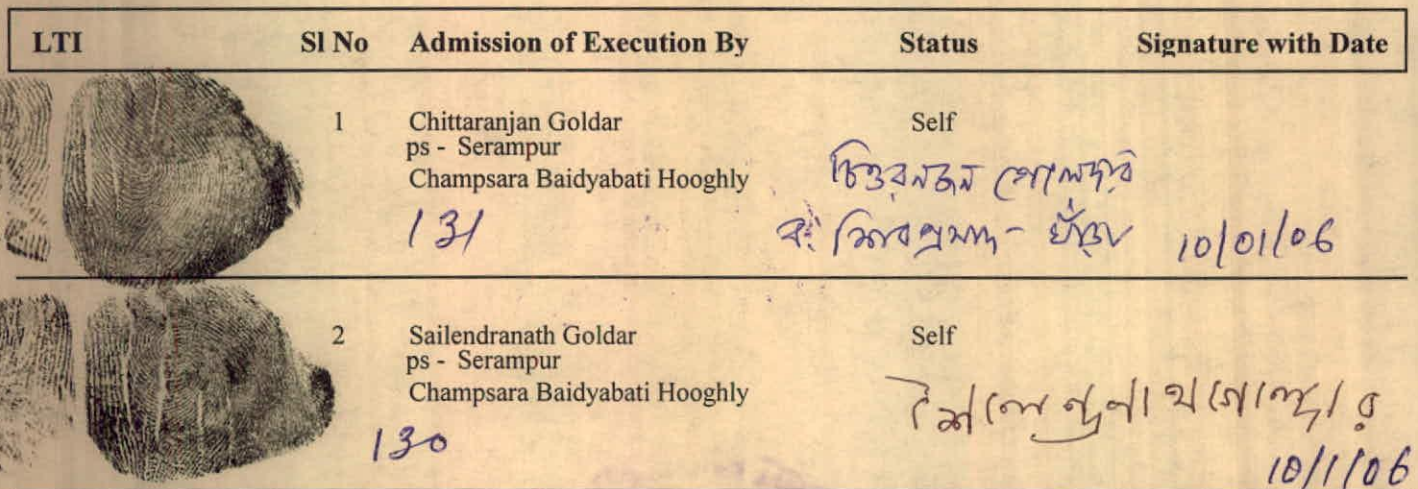 LTI Sl No Admission of Execution By Status Signature with Date
1 Chittaranjan Goldar Self
ps - Serampur
Champsara Baidyabati Hooghly
চিত্তরনজন গোলদার
131
বঃ শিবপ্রসাদ - 10/01/06
2 Sailendranath Goldar Self
ps - Serampur
Champsara Baidyabati Hooghly
শৈলেন্দ্রনাথ গোলদার
130
10/1/06